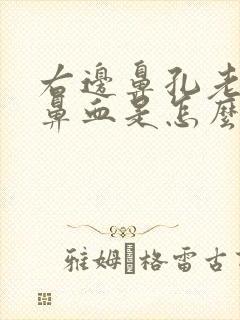 右邊鼻孔老
鼻血是怎麼
雅姆格雷古